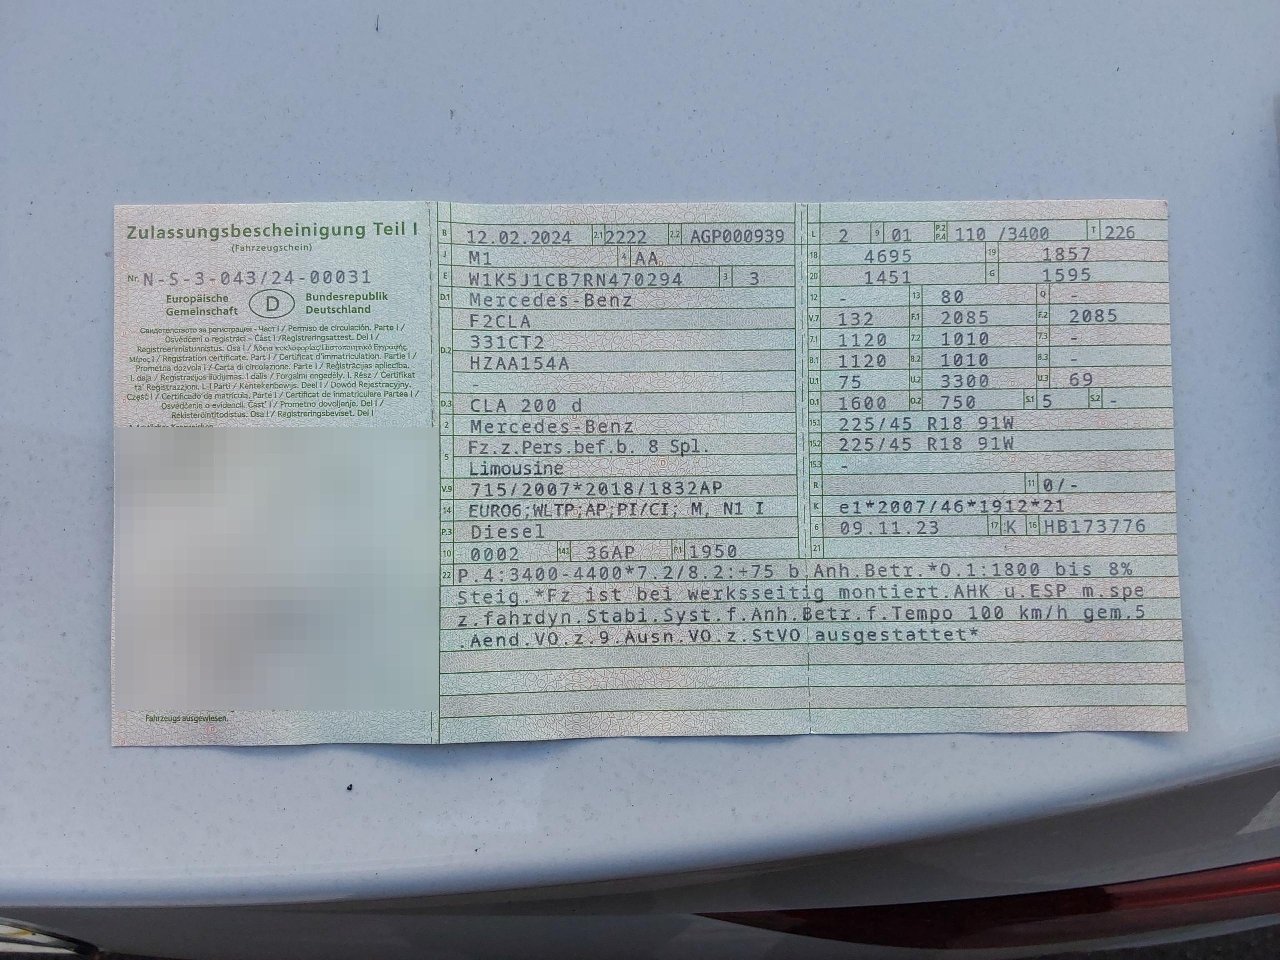 Zulassungsbescheinigung Teil I
(Fahrzeugschein)
Nr. N-S-3-043/24-00031
Europäische Gemeinschaft D Bundesrepublik Deutschland
Свидетелство за регистрация - Част I / Permiso de circulación. Parte I /
Osvědčení o registraci - Část I / Registreringsattest. Del I /
Registreerimistunnistus. Osa I / Άδεια κυκλοφορίας
Μέρος I / Registration certificate. Part I / Certificat d'immatriculation. Partie I /
Prometna dozvola I / Carta di circolazione. Parte I / Reģistrācijas apliecība.
I. daļa / Registracijos liudijimas. I dalis / Forgalmi engedély. I. Rész / Ċertifikat
ta' Reġistrazzjoni. L-I Parti / Kentekenbewijs. Deel I / Dowód Rejestracyjny.
Część I / Certificado de matrícula. Parte I / Certificat de înmatriculare Partea I /
Osvedčenie o evidencii. Časť I / Prometno dovoljenje. Del I /
Rekisteröintitodistus. Osa I / Registreringsbeviset. Del I
Fahrzeugs ausgewiesen.
B 12.02.2024 2.1 2222 2.2 AGP000939
J M1 4 AA
E W1K5J1CB7RN470294 3 3
D.1 Mercedes-Benz
F2CLA
D.2 331CT2
HZAA154A
-
D.3 CLA 200 d
2 Mercedes-Benz
5 Fz.z.Pers.bef.b. 8 Spl.
Limousine
V.9 715/2007*2018/1832AP
14 EURO6;WLTP;AP;PI/CI; M, N1 I
P.3 Diesel
10 0002 14.1 36AP P.1 1950
L 2 9 01 P.2 P.4 110 /3400 T 226
18 4695 19 1857
20 1451 G 1595
12 - 13 80 Q -
V.7 132 F.1 2085 F.2 2085
7.1 1120 7.2 1010 7.3 -
8.1 1120 8.2 1010 8.3 -
U.1 75 U.2 3300 U.3 69
O.1 1600 O.2 750 S.1 5 S.2 -
15.1 225/45 R18 91W
15.2 225/45 R18 91W
15.3 -
R 11 0/-
K e1*2007/46*1912*21
6 09.11.23 17 K 16 HB173776
21
22 P.4:3400-4400*7.2/8.2:+75 b.Anh.Betr.*O.1:1800 bis 8%
Steig.*Fz ist bei werksseitig montiert.AHK u.ESP m.spe
z.fahrdyn.Stabi.Syst.f.Anh.Betr.f.Tempo 100 km/h gem.5
.Aend.VO.z.9.Ausn.VO.z.StVO ausgestattet*